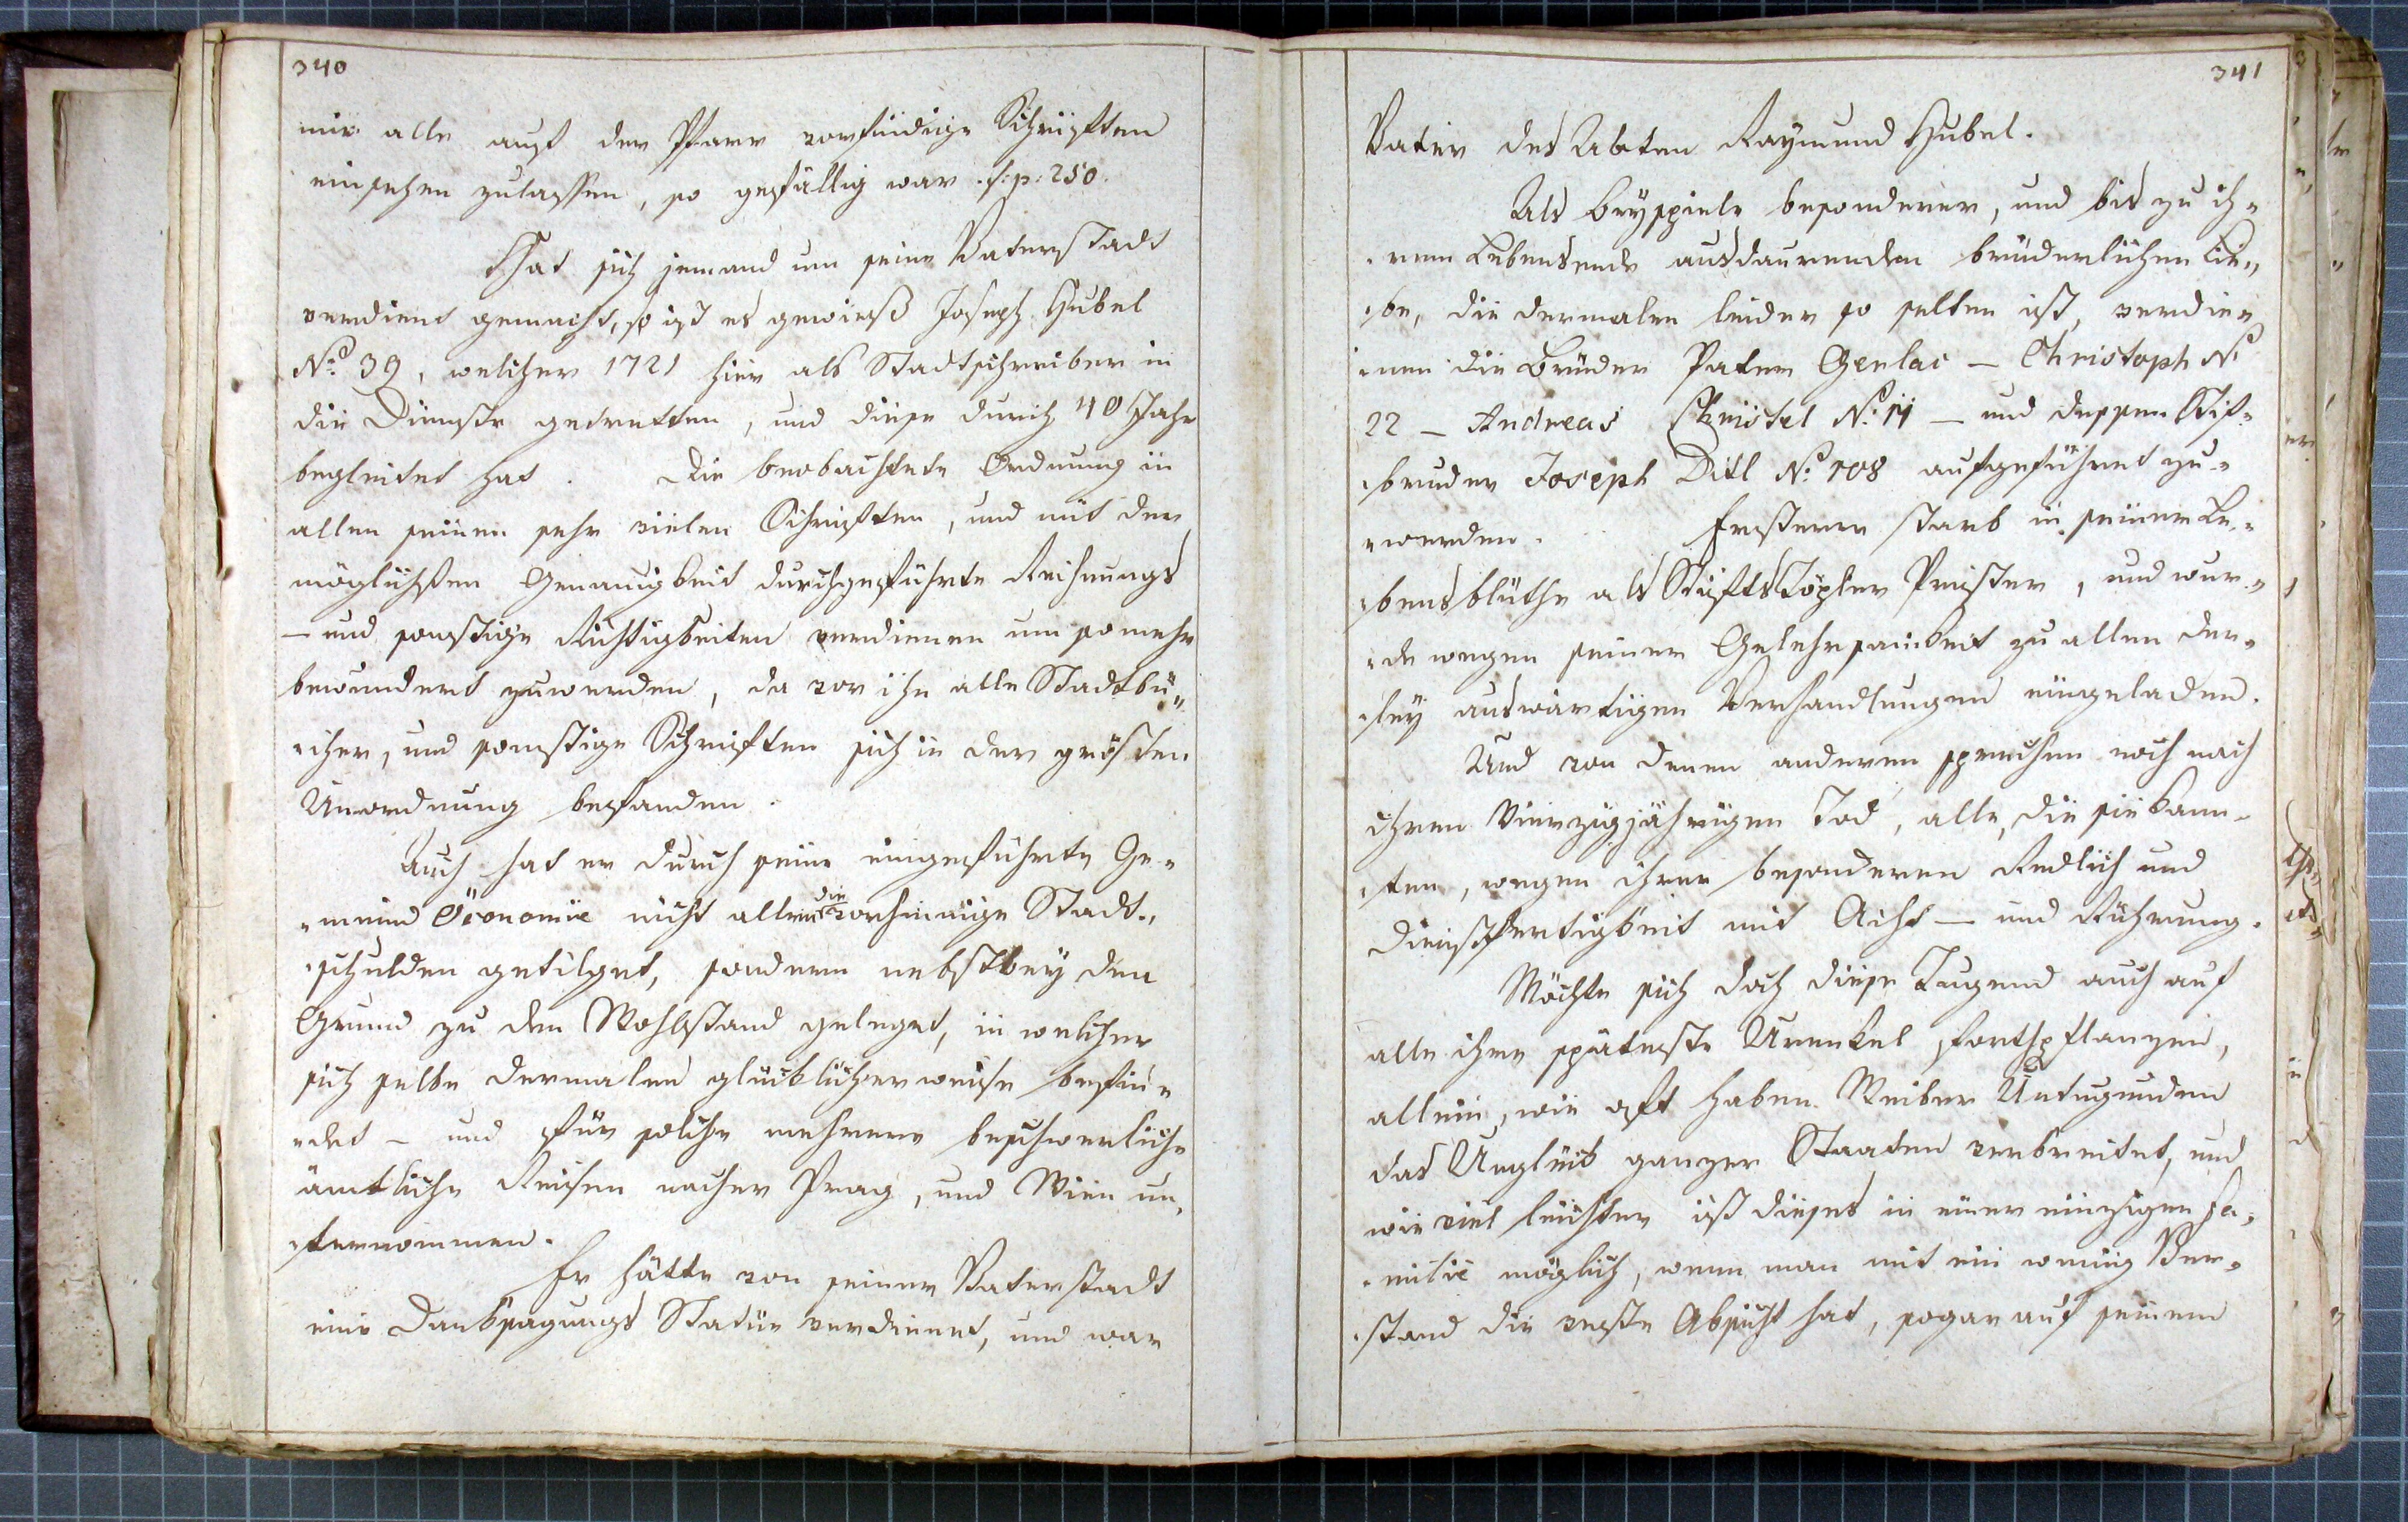 340
mir alle auf der Pfarr vorfindige Schriften
einsehen zulassen, so gefällig war. f: p: 250.
Hat sich jemand um seine Vaterstadt
verdient gemacht, so ist es gewieß Joseph Hubel
N: 39, welcher 1721 hier als Stadtschreiber in
die Dienste getretten, und diese durch 40 Jahr
begleitet hat. Die beobachtete Ordnung in
allen seinen sehr vielen Schriften, und mit der
möglichsten Genauigkeit durchgeführte Rechnungs
— und sonstige Richtigkeiten verdienen um somehr
bewundert zuwerden, da vor ihn alle Stadtbü„
„cher, und sonstige Schriften sich in der grösten
Unordnung befanden.
Auch hat er durch seine eingeführte Ge„
„meind Öconomie nicht allein die vorhinige Stadt„
„schulden getilget, sondern nebstbey den
Grund zu den Wohlstand geleget, in welcher
sich selbe dermalen glücklicherweise befin„
„det – und für solche mehrere beschwerliche
ämtliche Reisen nacher Prag, und Wien un„
„ternommen.
Er hätte von seiner Vaterstadt
eine Danksagungs Statüe verdienet, und war
341
Vater des Abten Raymund Hubel.
Als Beyspiele besonderer, und bis zu ih„
„rem Lebensende ausdaurenden brüderlichen Lie„
„be, die dermalen leider so selten ist, verdie„
„nen die Brüder Pater Gerlac – Christoph N:
22 – Andreas Christel N: 11 – und dessen Stif„
„bruder Joseph Ditl N: 108 aufgeführet zu„
„werden. Ersterer starb in seiner Le„
„bensblüthe als Stifts Töpler Priester, und wur„
„de wegen seiner Gelehrsamkeit zu allen der„
„ley auswärtigen Verhandlungen eingeladen.
Und von denen anderen sprechen noch nach
ihren Vierzigjährigen Tod, alle, die sie kann„
„ten, wegen ihrer besonderen Redlich und
Dienstfertigkeit mit Acht — und Rührung.
Möchte sich doch diese Tugend auch auf
alle ihre späteste Urenkel forthpflanzen,
allein, wie oft haben Weiber Untugenden
das Unglück ganzer Staaten verbreitet, und
wie viel leichter ist dieses in einer einzigen Fa„
„milie möglich, wenn man mit ein wenig Ver„
„stand die veste Absicht hat, sogar auf seinem